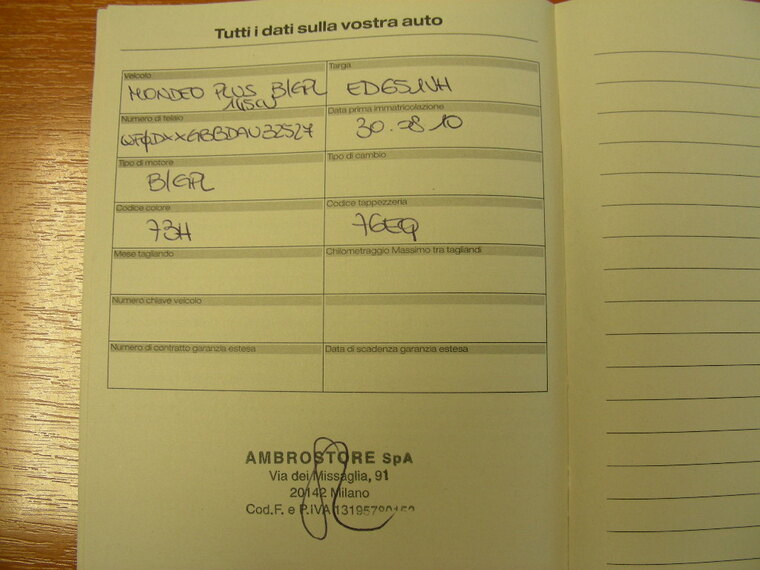 Tutti i dati sulla vostra auto
Veicolo
MONDEO PLUS B/GPL
145CV
Targa
ED651VH
Numero di telaio
WFØDXXGBBDAU32527
Data prima immatricolazione
30.08.10
Tipo di motore
B/GPL
Tipo di cambio
Codice colore
73H
Codice tappezzeria
76EQ
Mese tagliando
Chilometraggio Massimo tra tagliandi
Numero chiave veicolo
Numero di contratto garanzia estesa
Data di scadenza garanzia estesa
AMBROSTORE SpA
Via dei Missaglia, 91
20142 Milano
Cod.F. e P.IVA